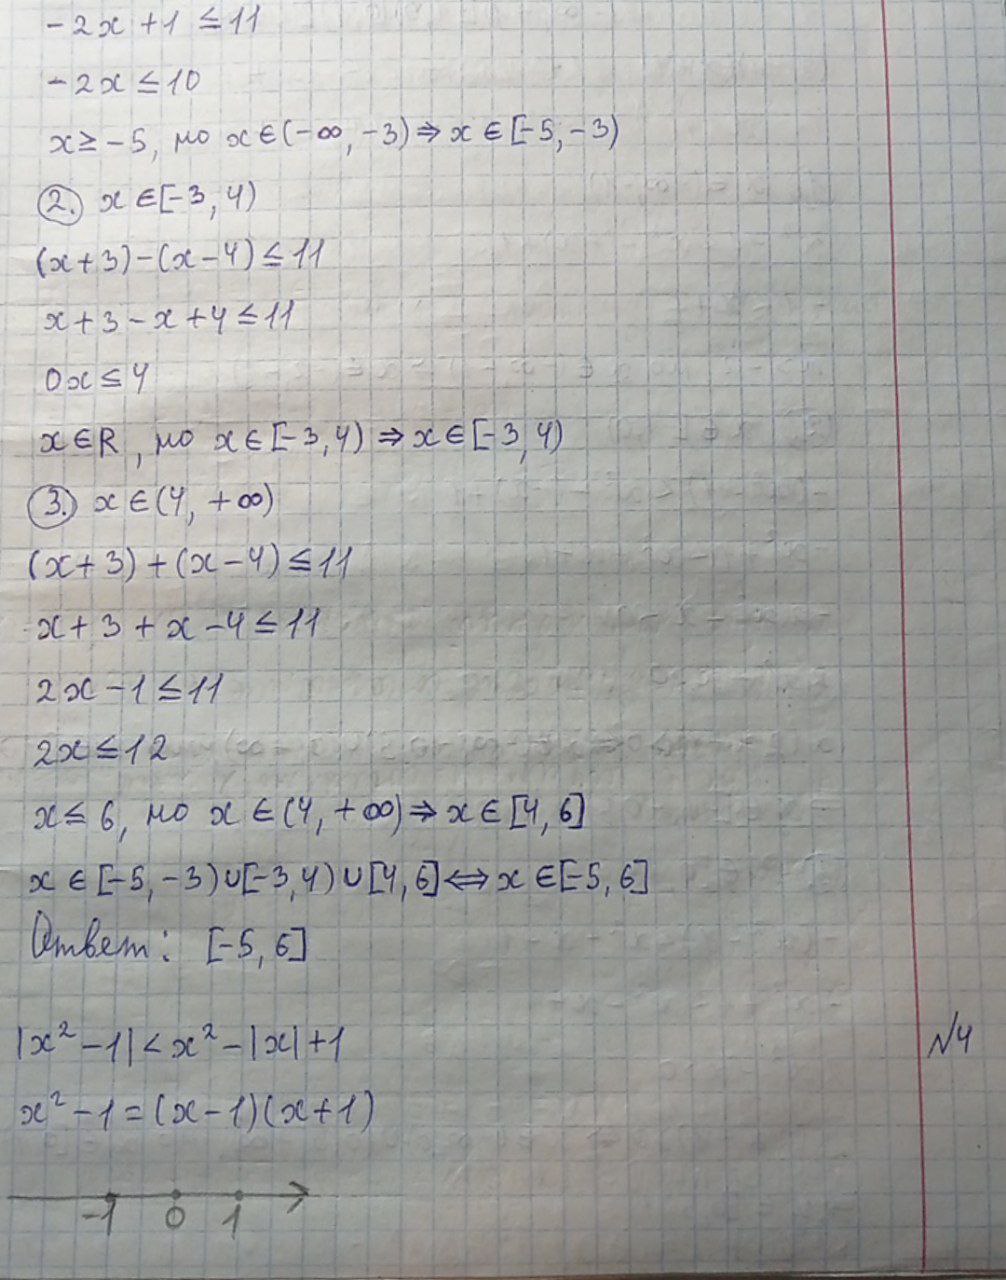 -2x+1≤11
-2x≤10
x≥-5, но x∈(-∞,-3)⇒x∈[-5,-3)
2. x∈[-3,4)
(x+3)-(x-4)≤11
x+3-x+4≤11
0x≤4
x∈R, но x∈[-3,4)⇒x∈[-3,4)
3. x∈(4,+∞)
(x+3)+(x-4)≤11
x+3+x-4≤11
2x-1≤11
2x≤12
x≤6, но x∈(4,+∞)⇒x∈[4,6]
x∈[-5,-3)∪[-3,4)∪[4,6]⇔x∈[-5,6]
Ответ: [-5,6]
|x²-1|<x²-|x|+1 №4
x²-1=(x-1)(x+1)
-1 0 1